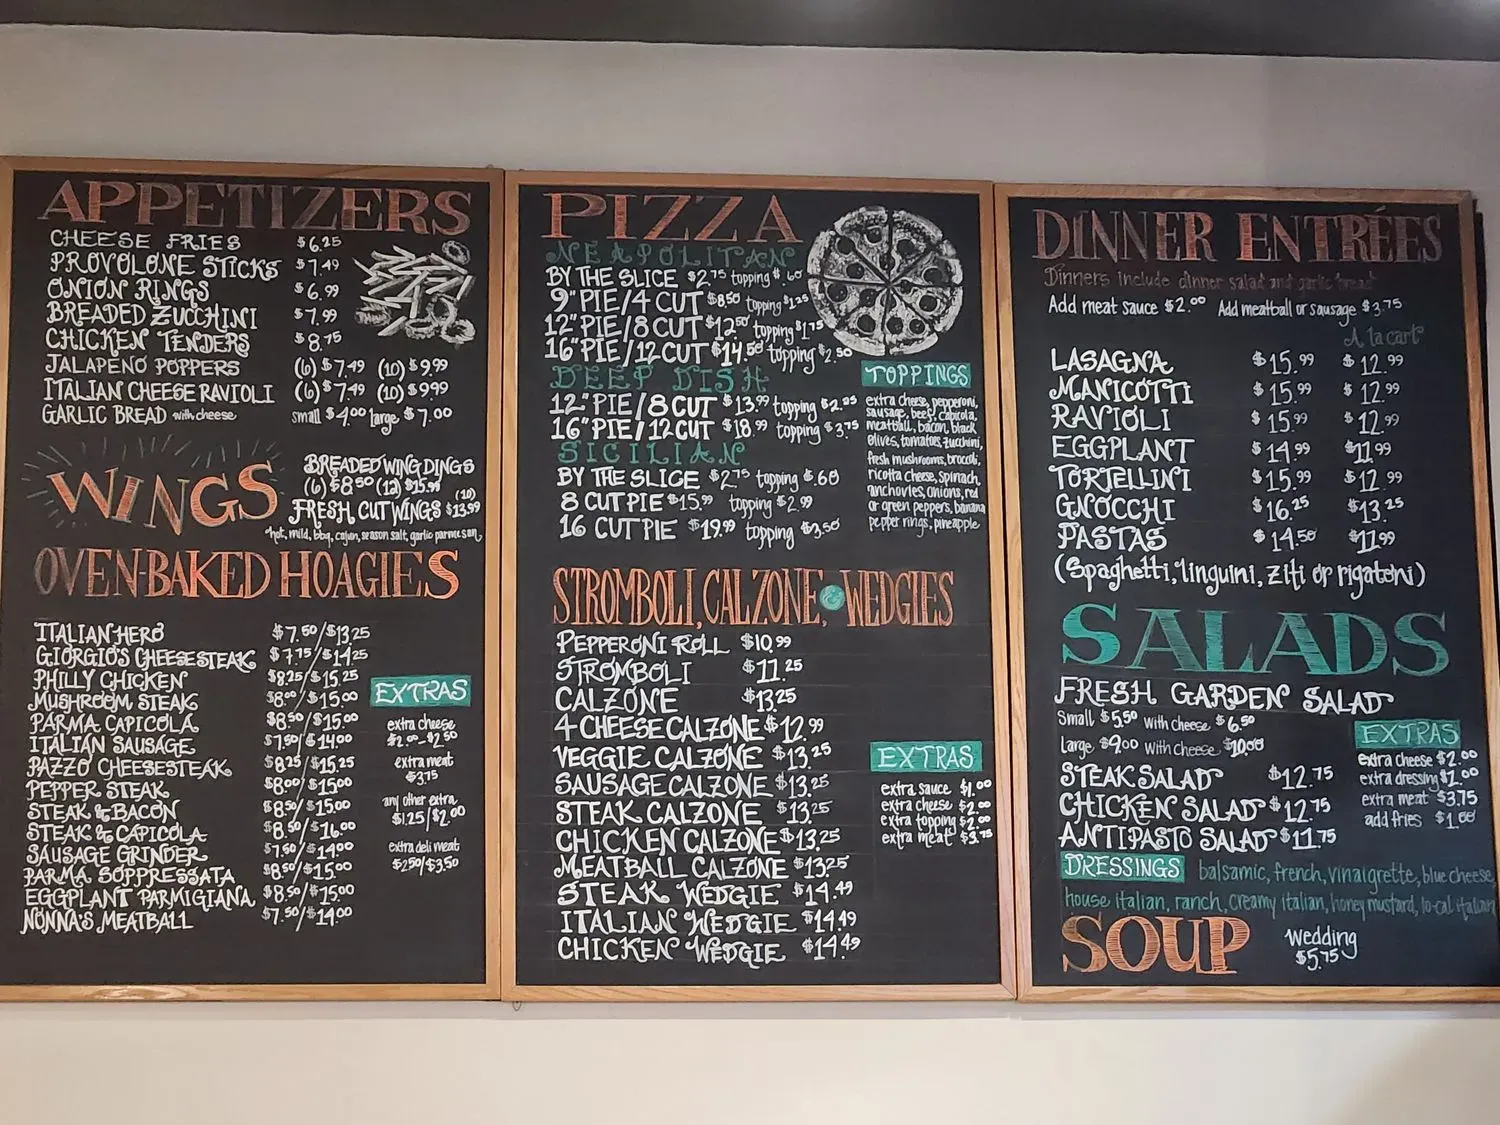 APPETIZERS
CHEESE FRIES $6.25
PROVOLONE STICKS $7.49
ONION RINGS $6.99
BREADED ZUCCHINI $7.99
CHICKEN TENDERS $8.75
JALAPENO POPPERS (6) $7.49 (10) $9.99
ITALIAN CHEESE RAVIOLI (6) $7.49 (10) $9.99
GARLIC BREAD with cheese small $4.00 large $7.00
WINGS
BREADED WING DINGS
(6) $8.50 (12) $15.99
(10)
FRESH CUT WINGS $13.99
*hot, mild, bbq, cajun, season salt, garlic parmesan
OVEN-BAKED HOAGIES
ITALIAN HERO $7.50/$13.25
GIORGIO'S CHEESESTEAK $7.75/$14.25
PHILLY CHICKEN $8.25/$15.25
MUSHROOM STEAK $8.00/$15.00
PARMA CAPICOLA $8.50/$15.00
ITALIAN SAUSAGE $7.50/$14.00
PAZZO CHEESESTEAK $8.25/$15.25
PEPPER STEAK $8.00/$15.00
STEAK & BACON $8.50/$15.00
STEAK & CAPICOLA $8.50/$16.00
SAUSAGE GRINDER $7.50/$14.00
PARMA SOPPRESSATA $8.50/$15.00
EGGPLANT PARMIGIANA $8.50/$15.00
NONNA'S MEATBALL $7.50/$14.00
EXTRAS
extra cheese
$2.00-$2.50
extra meat
$3.75
any other extra
$1.25/$2.00
extra deli meat
$2.50/$3.50
PIZZA
NEAPOLITAN
BY THE SLICE $2.75 topping $.60
9" PIE/4 CUT $8.50 topping $1.25
12" PIE/8 CUT $12.50 topping $1.75
16" PIE/12 CUT $14.50 topping $2.50
DEEP DISH
12" PIE/8 CUT $13.99 topping $2.25
16" PIE/12 CUT $18.99 topping $3.75
SICILIAN
BY THE SLICE $2.75 topping $.60
8 CUT PIE $15.99 topping $2.99
16 CUT PIE $19.99 topping $3.50
TOPPINGS
extra cheese, pepperoni,
sausage, beef, capicola,
meatball, bacon, black
olives, tomatoes, zucchini,
fresh mushrooms, broccoli,
ricotta cheese, spinach,
anchovies, onions, red
or green peppers, banana
pepper rings, pineapple
STROMBOLI, CALZONE, & WEDGIES
PEPPERONI ROLL $10.99
STROMBOLI $11.25
CALZONE $13.25
4 CHEESE CALZONE $12.99
VEGGIE CALZONE $13.25
SAUSAGE CALZONE $13.25
STEAK CALZONE $13.25
CHICKEN CALZONE $13.25
MEATBALL CALZONE $13.25
STEAK WEDGIE $14.49
ITALIAN WEDGIE $14.49
CHICKEN WEDGIE $14.49
EXTRAS
extra sauce $1.00
extra cheese $2.00
extra topping $2.00
extra meat $3.75
DINNER ENTRÉES
Dinners include dinner salad and garlic bread
Add meat sauce $2.00 Add meatball or sausage $3.75
A la cart
LASAGNA $15.99 $12.99
MANICOTTI $15.99 $12.99
RAVIOLI $15.99 $12.99
EGGPLANT $14.99 $11.99
TORTELLINI $15.99 $12.99
GNOCCHI $16.25 $13.25
PASTAS $14.50 $11.99
(Spaghetti, linguini, ziti or rigatoni)
SALADS
FRESH GARDEN SALAD
Small $5.50 with cheese $6.50
Large $9.00 with cheese $10.00
STEAK SALAD $12.75
CHICKEN SALAD $12.75
ANTIPASTO SALAD $11.75
EXTRAS
extra cheese $2.00
extra dressing $1.00
extra meat $3.75
add fries $1.00
DRESSINGS balsamic, french, vinaigrette, blue cheese,
house italian, ranch, creamy italian, honey mustard, lo-cal italian
SOUP
Wedding
$5.75